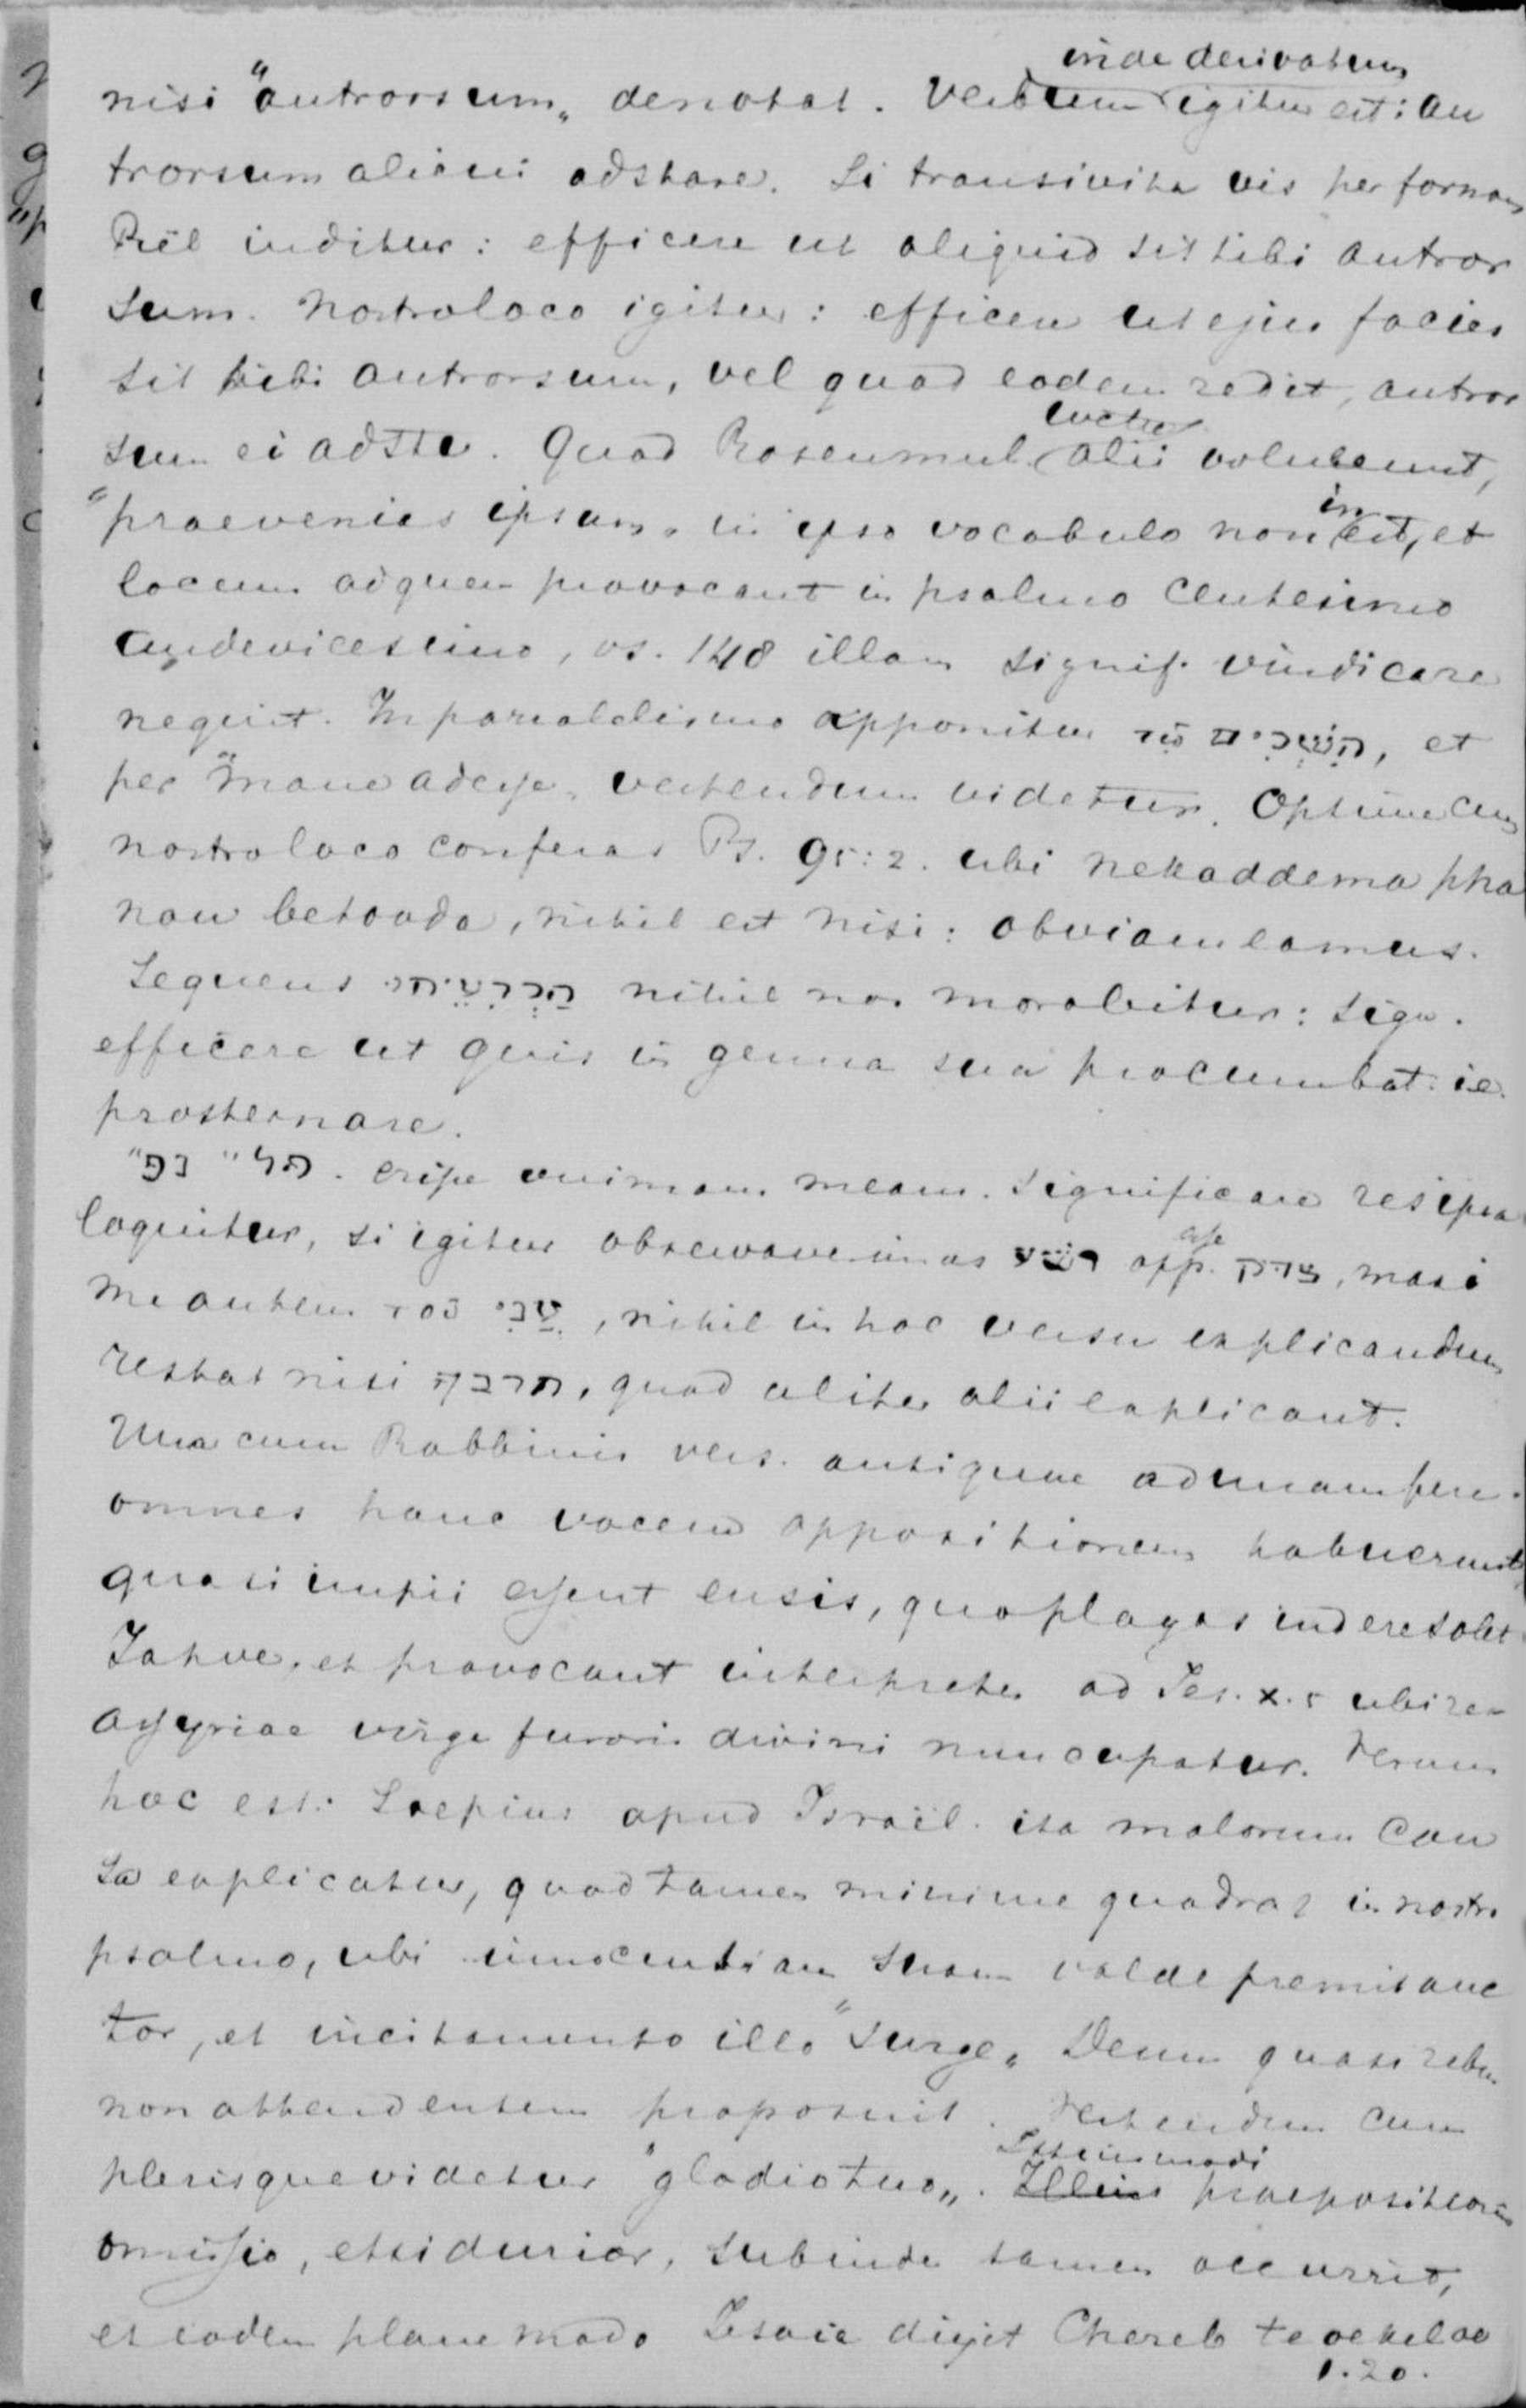 inde derivatum
nisi "antrorsum„ denotat. Verbum igitur est: an
trorsum alicui adstare. Si transivita vis per formam
Piël inditur: efficere ut aliquid sit tibi antror
sum. Nostro loco igitur: efficere ut ejus facies
sit tibi antrorsum, vel quod eodem redit, antror
sum ei adsta. Quod Rosenmul. alii voluerunt,
"praevenias ipsum„ in ipso vocabulo non inest, et
locum ad quem provocant in psalmo centesimo
undevicesimo, vs. 148 illam signif. vindicare
nequit. In parallelismo apponitur, et
per "mane adesse„ vertendum videtur. Optime cum
nostro loco conferas Ps. 95:2. ubi nekaddema pha
nau bethoda, nihil est nisi: obviam eamus.
Sequens הַכְרִיעֵהוּ nihil nos morabitur: sign.
efficere ut quis in genua sua procumbat. i.e.
prosternare.
פל" נפ". eripe animam meam. significare res ipsa
loquitur, si igitur observaverimus רשע opp. esse צדיק, masi
me autem, nihil in hoc versu explicandum
restat nisi חרבך, quod aliter alii explicant.
Una cum Rabbinis vers. antiquae ad unam fere.
omnes hanc vocem appositionem habuerunt,
quasi impii essent ensis, quo plagas indere solet
Jahve, et provocant interpretes ad Jes. X. 5 ubi rex
Assyriae virga furoris divini nuncupatur. Verum
hoc est: Saepius apud Israël. ita malorum cau
sa explicatur, quod tamen minime quadrat in nostro
psalmo, ubi innocentiam suam valde premit auc
tor, et incitamento illo "surge„ Deum quasi rebus
non attendentem proposuit. Vertendum cum
plerisque videtur "gladio tuo„. Istiusmodi praepositionis
omissio, etsi durior, subinde tamen occurrit,
et eodem plane modo Jesaia dixit Chereb teoekeloe
1.20.